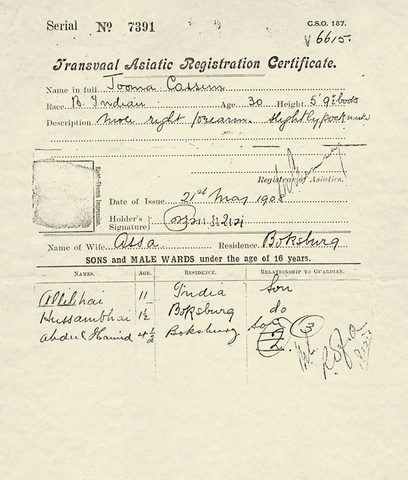 Serial No 7391
C.S.O. 187.
6615.
Transvaal Asiatic Registration Certificate.
Name in full Tooma Cassim
Race B. Indian Age 30 Height 5' 9" boots
Description mole right forearm. slightly pock mark
Registrar of Asiatics.
Date of Issue 21st May 1908
Holder's
Signature
Name of Wife Assa Residence Boksburg
SONS and MALE WARDS under the age of 16 years.
NAMES. AGE. RESIDENCE. RELATIONSHIP TO GUARDIAN.
Allibhai 11 India Son
Hussambhai 1½ Boksburg do
Abdul Hamid 4½ Boksburg Son 3
2.